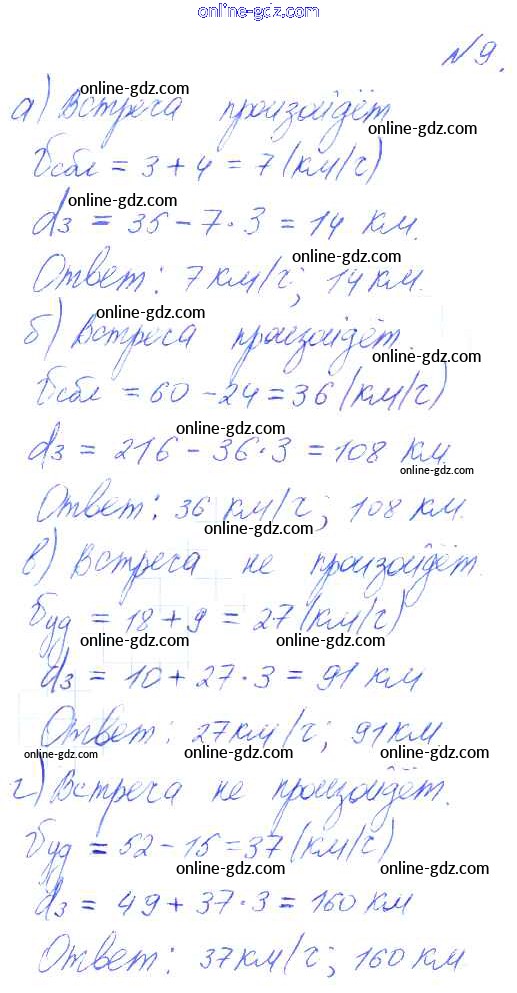 online-gdz.com
№9.
а) Встреча произойдёт
online-gdz.com
online-gdz.com
Vсбл = 3 + 4 = 7 (км/ч)
online-gdz.com
d3 = 35 - 7·3 = 14 км.
online-gdz.com
Ответ: 7 км/ч; 14 км.
online-gdz.com
б) Встреча произойдёт.
online-gdz.com
Vсбл = 60 - 24 = 36 (км/ч)
online-gdz.com
d3 = 216 - 36·3 = 108 км
online-gdz.com
Ответ: 36 км/ч; 108 км.
online-gdz.com
в) Встреча не произойдёт.
online-gdz.com
Vуд = 18 + 9 = 27 (км/ч)
online-gdz.com online-gdz.com
d3 = 10 + 27·3 = 91 км
Ответ: 27 км/ч; 91 км
online-gdz.com online-gdz.com online-gdz.com
г) Встреча не произойдёт.
Vуд = 52 - 15 = 37 (км/ч)
online-gdz.com online-gdz.com
d3 = 49 + 37·3 = 160 км
Ответ: 37 км/ч; 160 км
online-gdz.com online-gdz.com